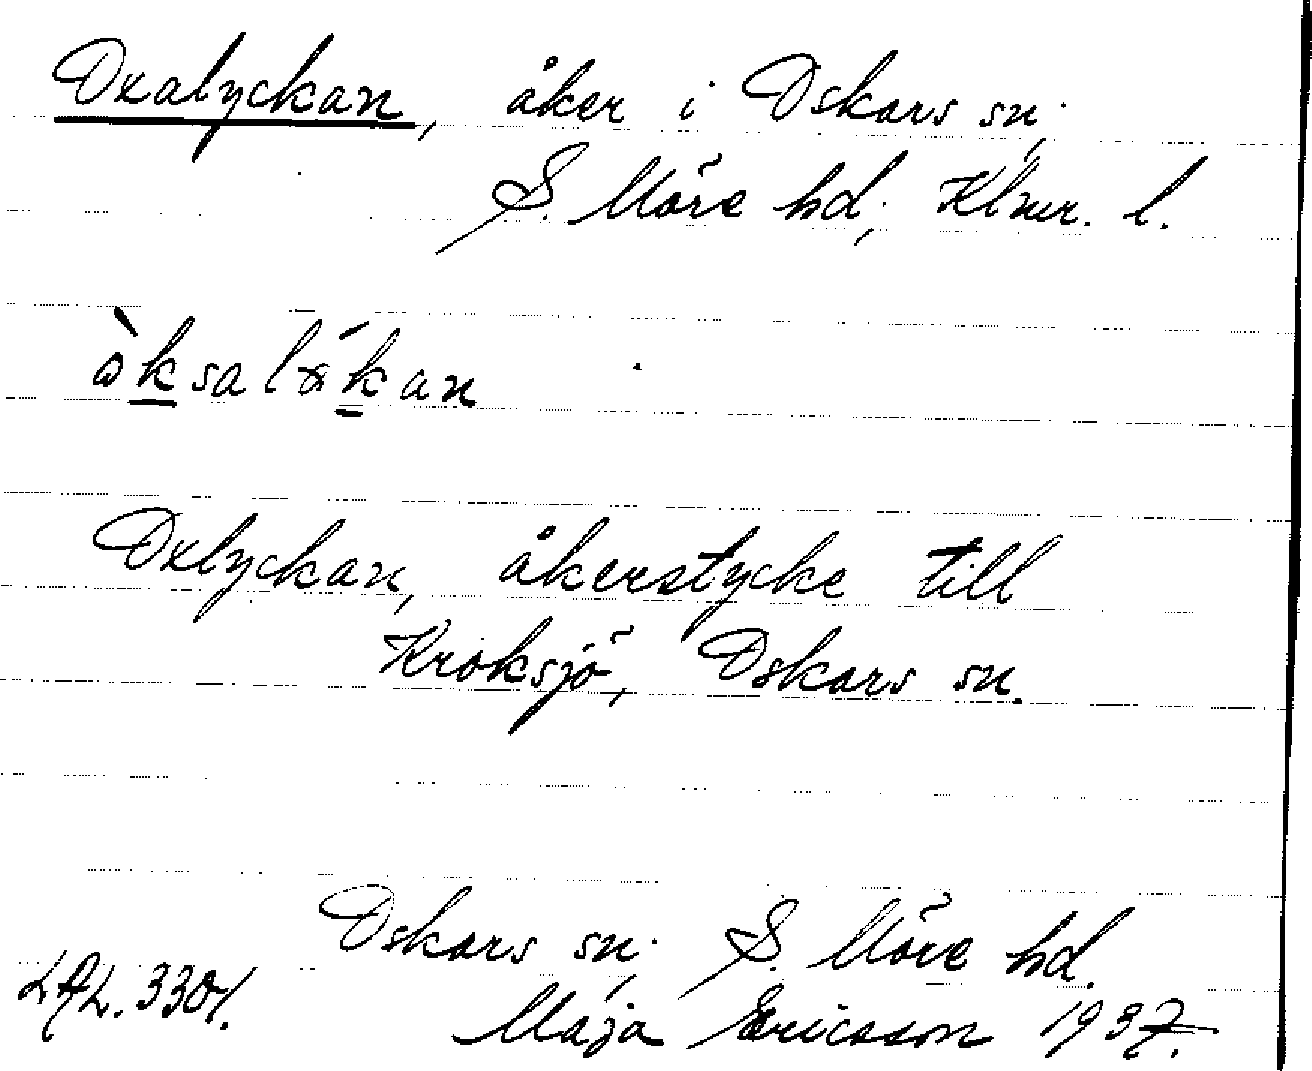 Oxalyckan, åker i Oskars sn,
S. Möre hd, Klmr. l.
òksaløkan
Oxlyckan, åkerstycke till
Kroksjö, Oskars sn.
Oskars sn, S. Möre hd.
Maja Ericsson 1937.